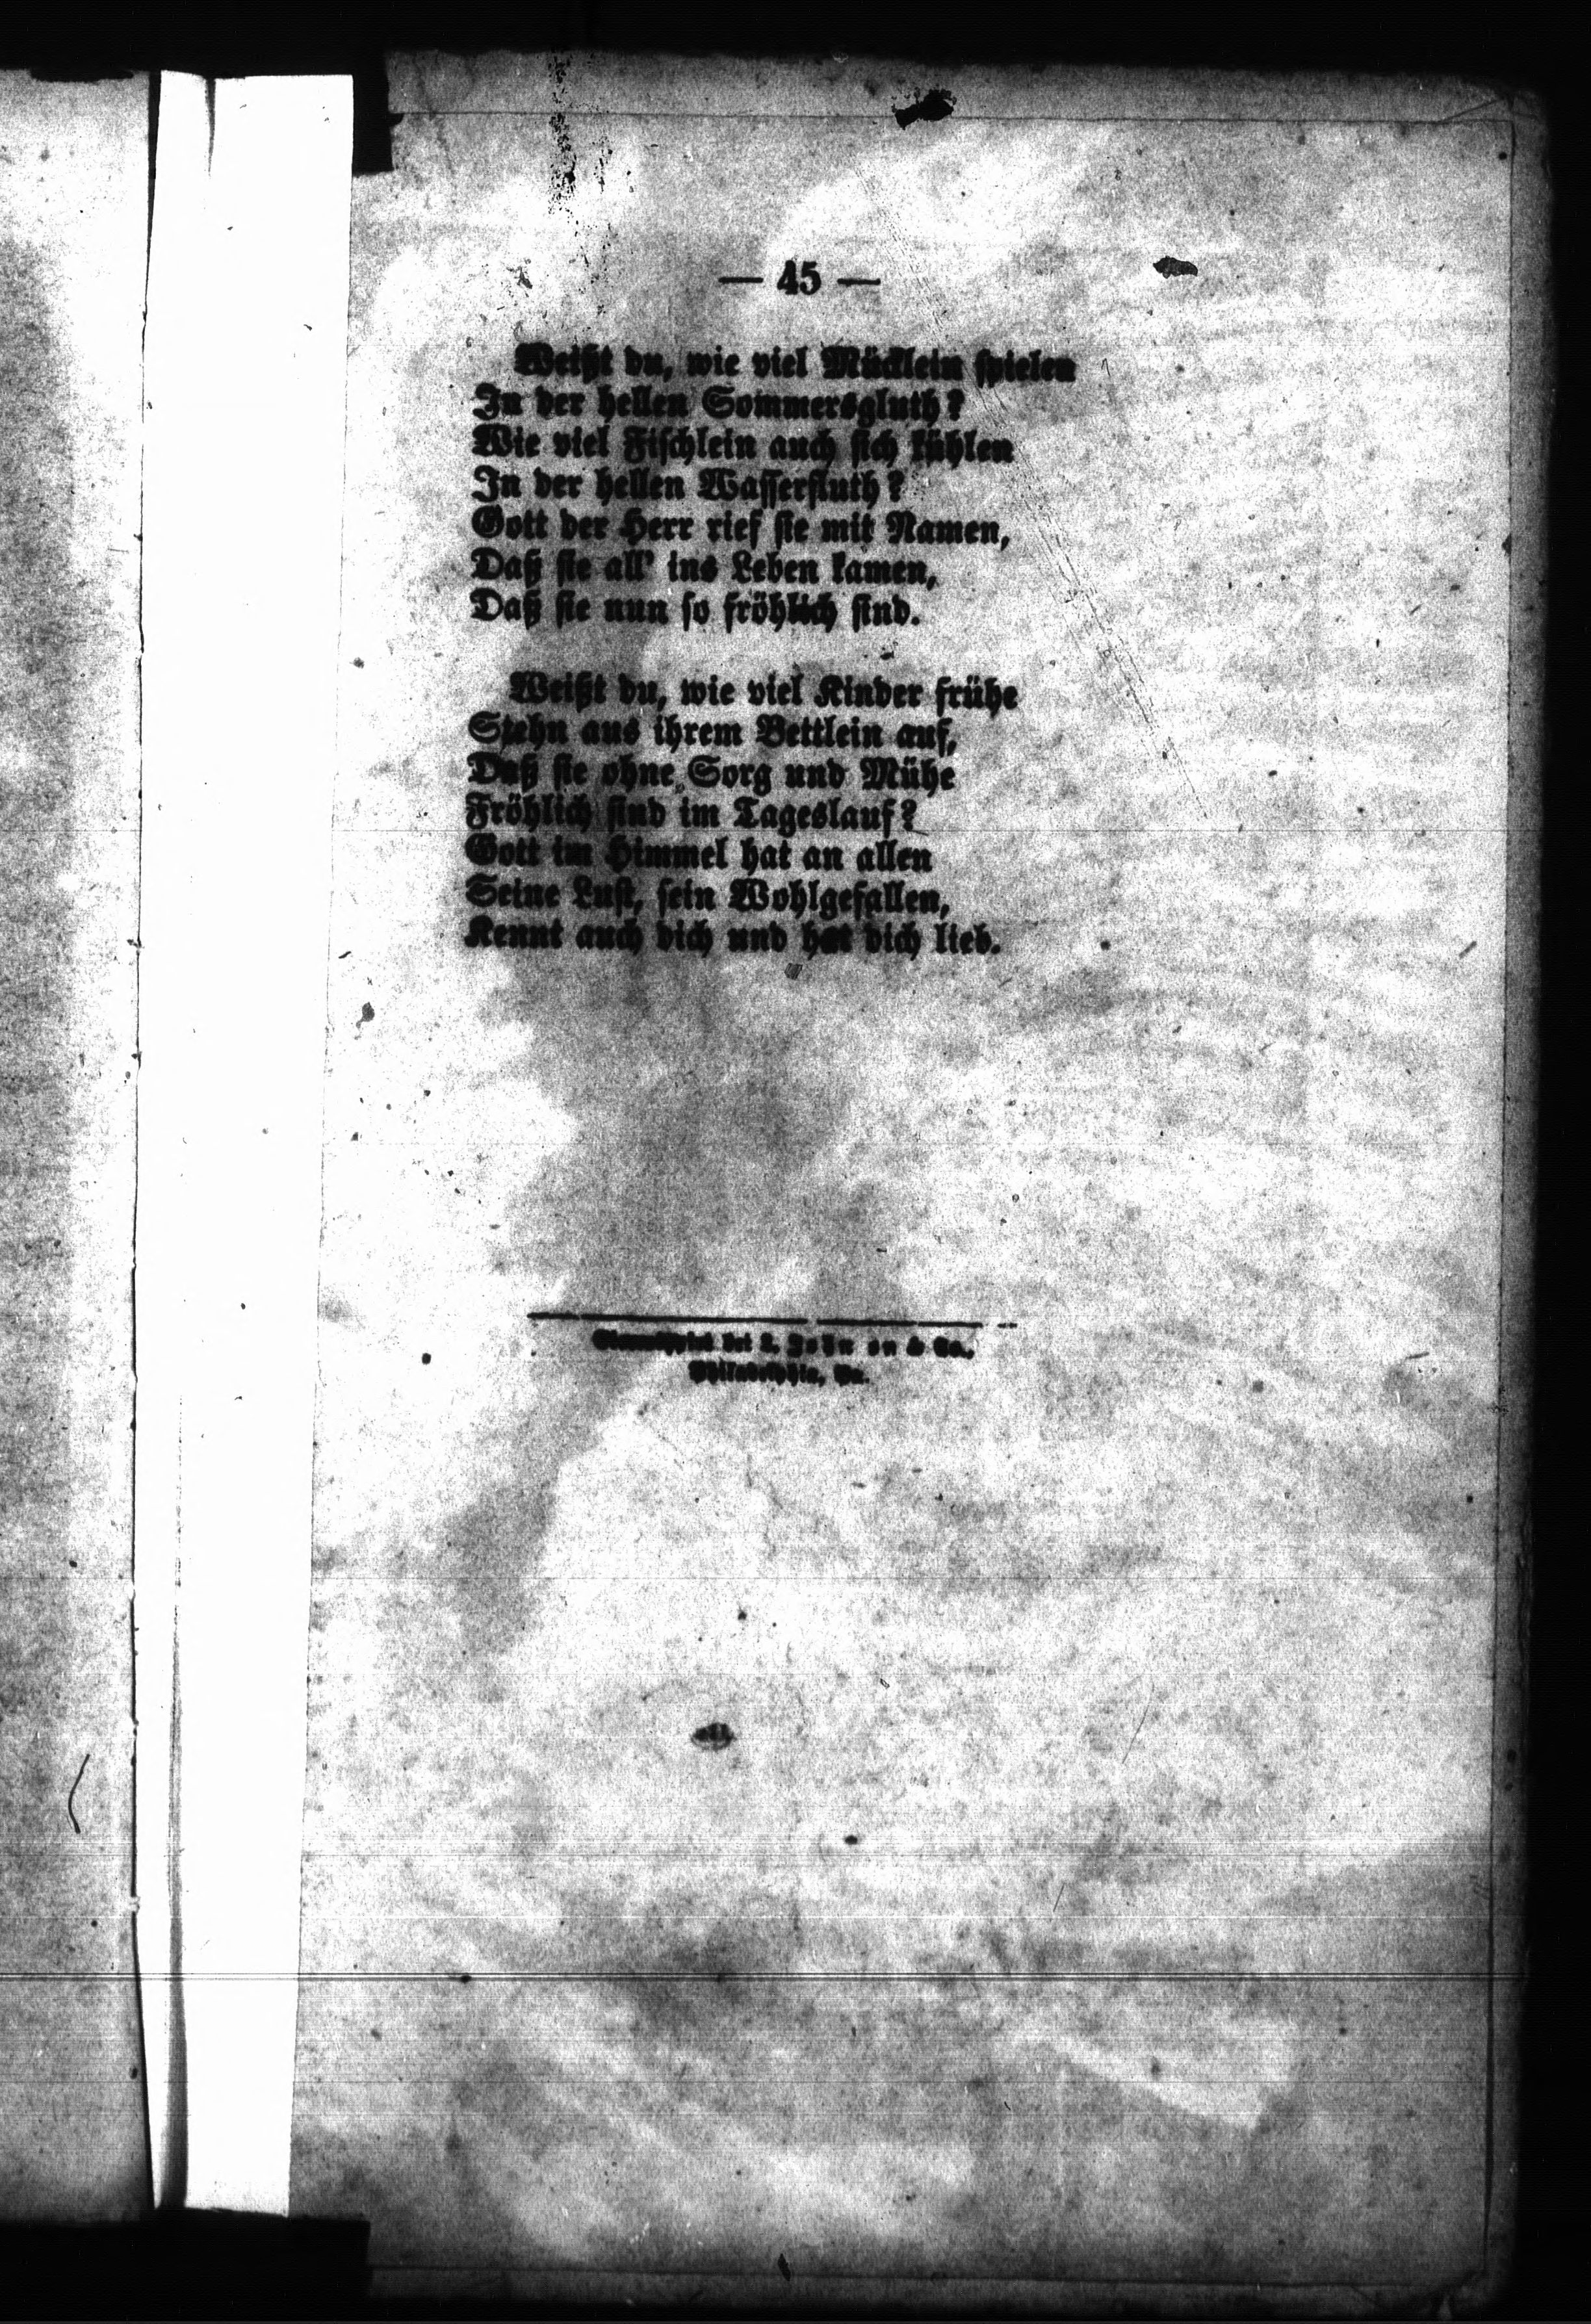 — 45 —
Weißt du, wie viel Mücklein spielen
In der hellen Sommersgluth?
Wie viel Fischlein auch sich kühlen
In der hellen Wasserfluth?
Gott der Herr rief sie mit Namen,
Daß sie all' ins Leben kamen,
Daß sie nun so fröhlich sind.
Weißt du, wie viel Kinder frühe
Stehn aus ihrem Bettlein auf,
Daß sie ohne Sorg und Mühe
Fröhlich sind im Tageslauf?
Gott im Himmel hat an allen
Seine Lust, sein Wohlgefallen,
Kennt auch dich und hat dich lieb.
bei L. & Co.,
Philadelphia, Pa.